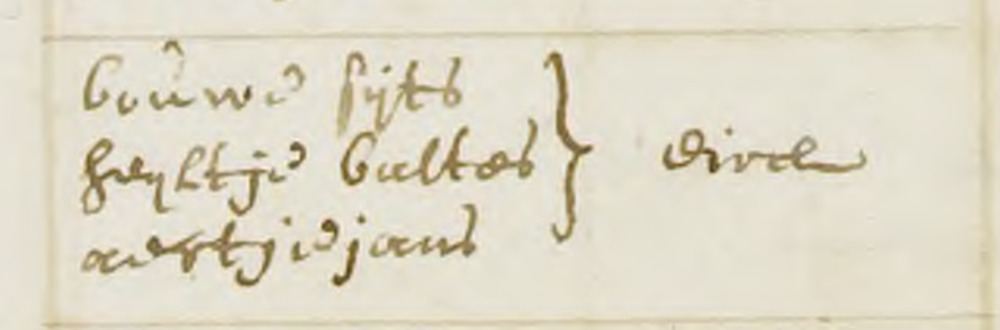 bouwe sijts
heyltje baltes
aertje jans
dirck